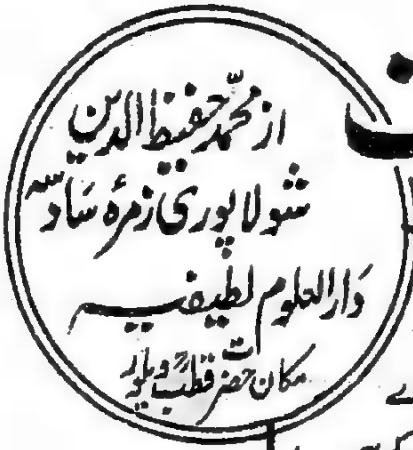 از محمّد حفیظ الدین
شولاپوری زمرۂ سَادسہ
دَارالعلوم لطیفیہ
مکان حضرت قطب ویلور